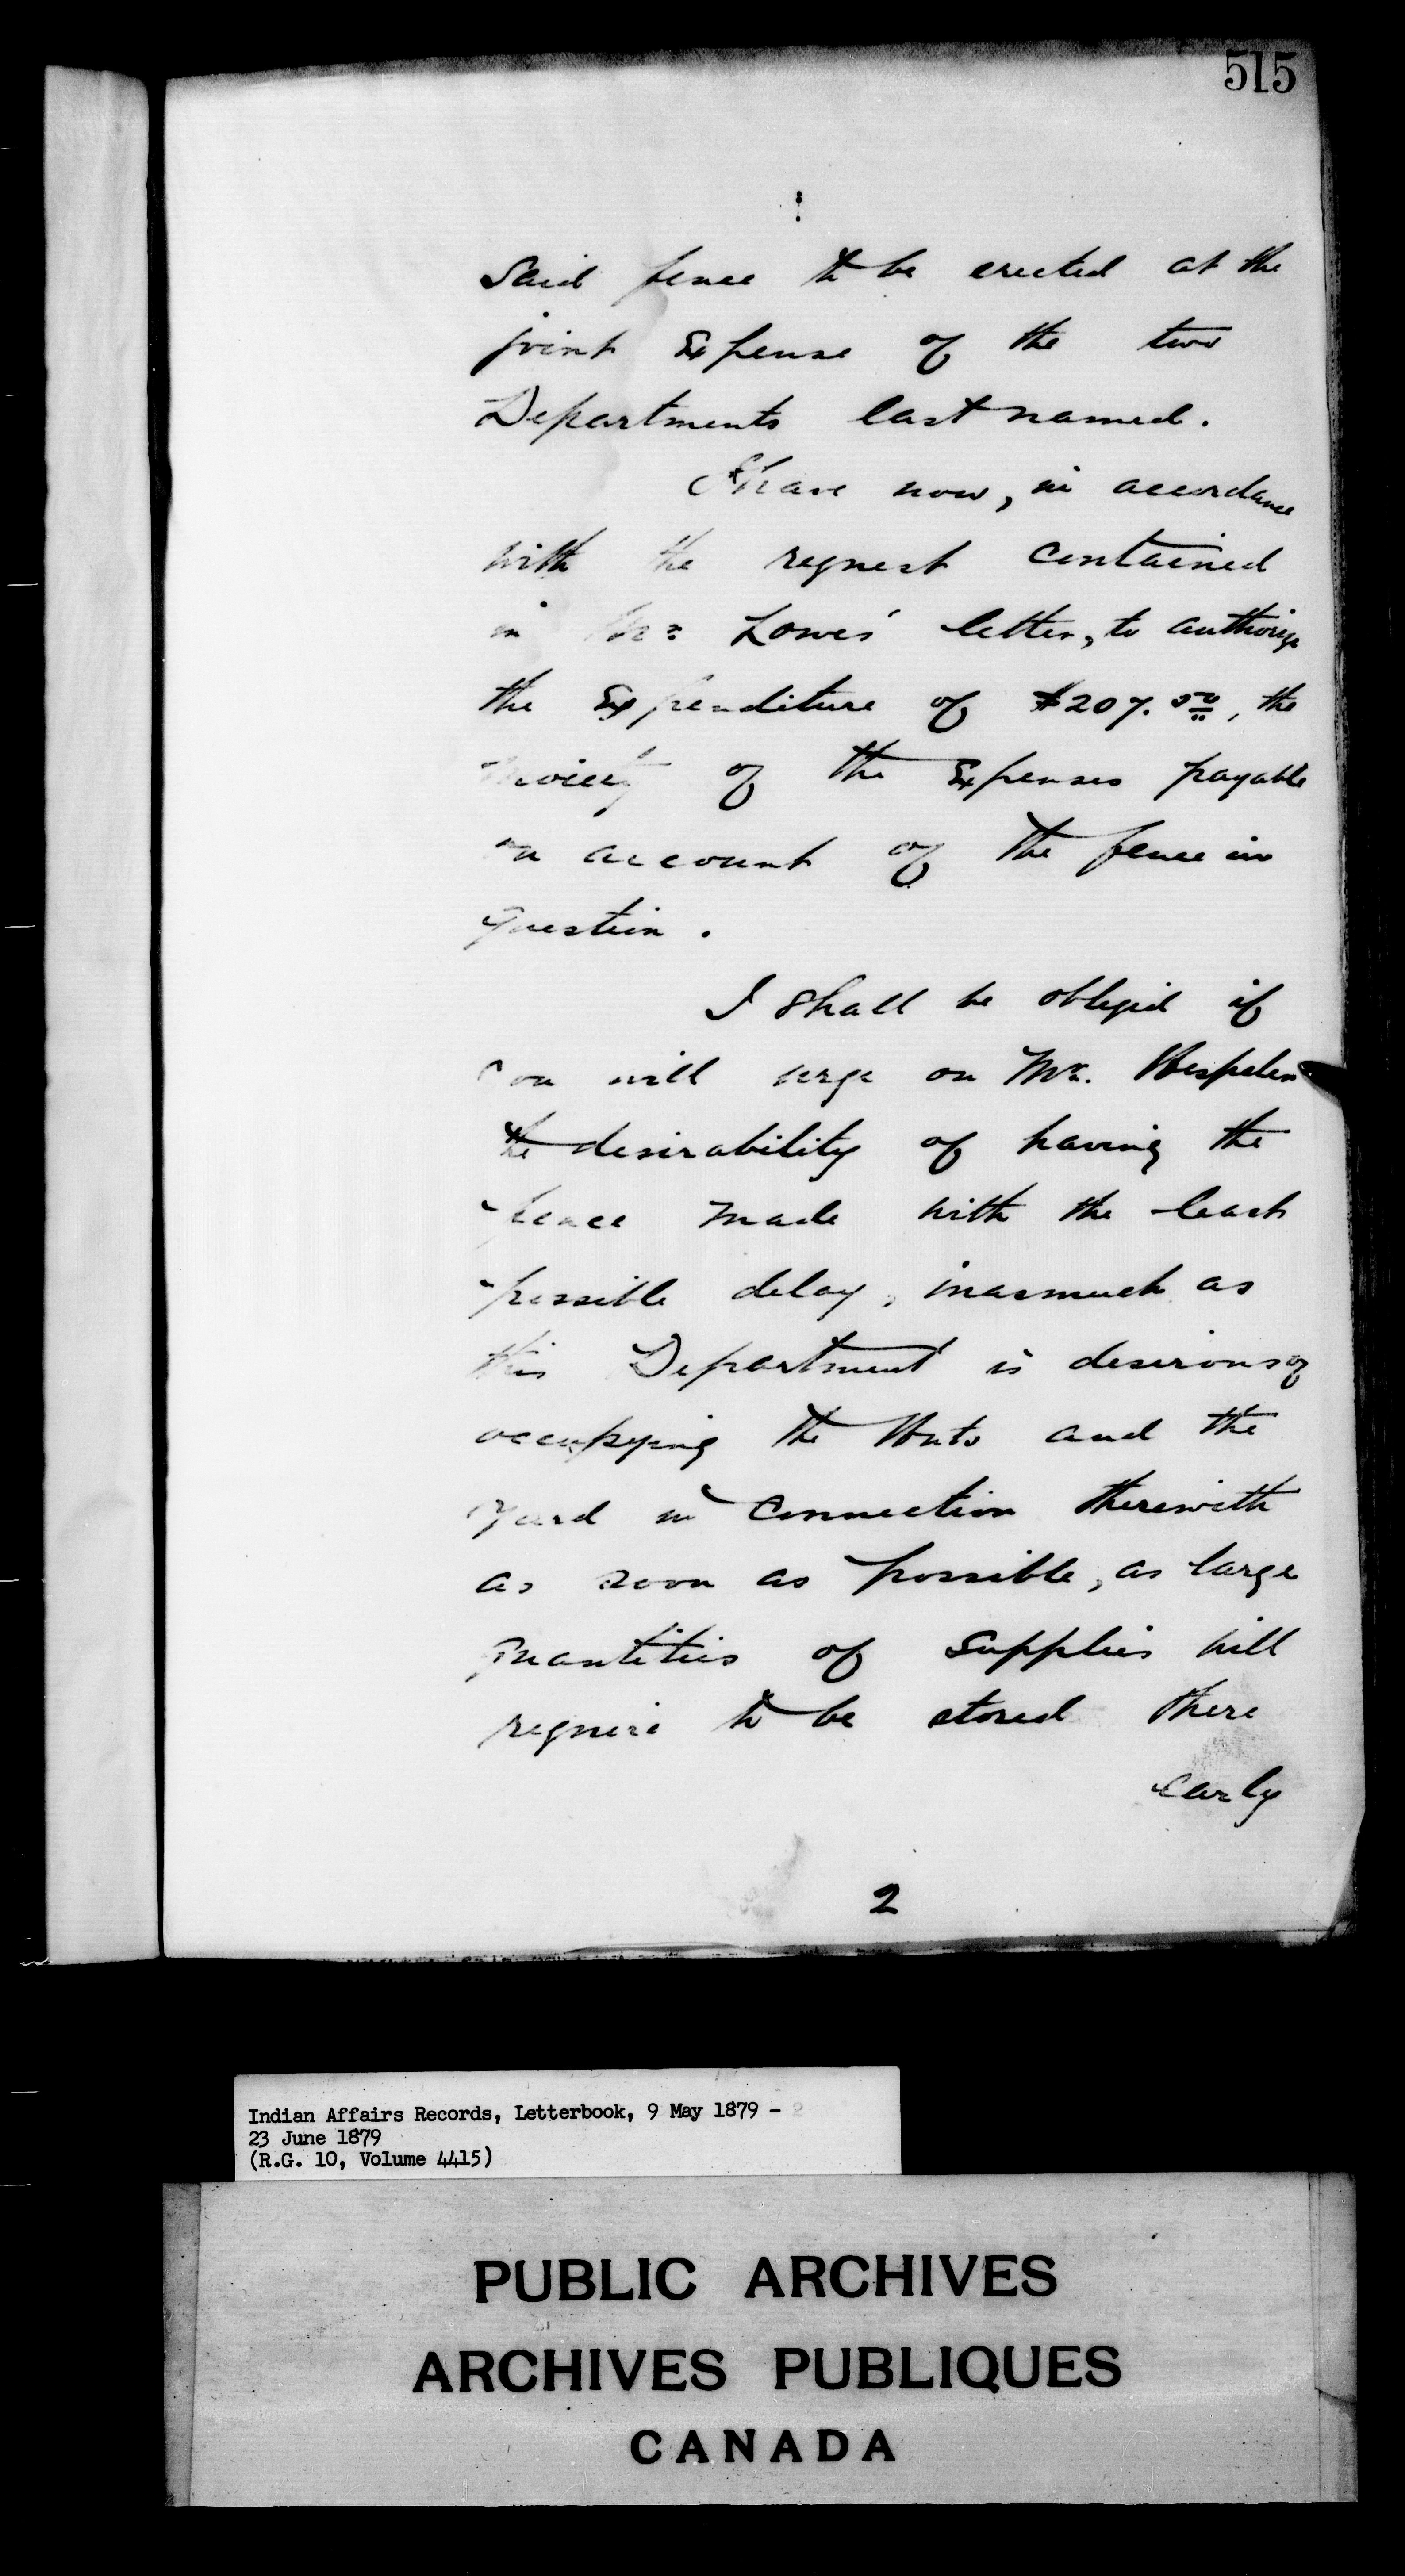 515
said fence to be erected at the
joint Expense of the two
Departments last named.
I have now, in accordance
with the request contained
in Mr. Lowes' letter, to authorize
the Expenditure of $207.50, the
moiety of the Expenses payable
on account of the fence in
question.
I shall be obliged if
you will urge on Mr. Hespeler
the desirability of having the
fence made with the least
possible delay, inasmuch as
this Department is desirous of
occupying the Huts and the
yard in connection therewith
as soon as possible, as large
quantities of supplies will
require to be stored there
early
2
Indian Affairs Records, Letterbook, 9 May 1879 -
23 June 1879
(R.G. 10, Volume 4415)
PUBLIC ARCHIVES
ARCHIVES PUBLIQUES
CANADA